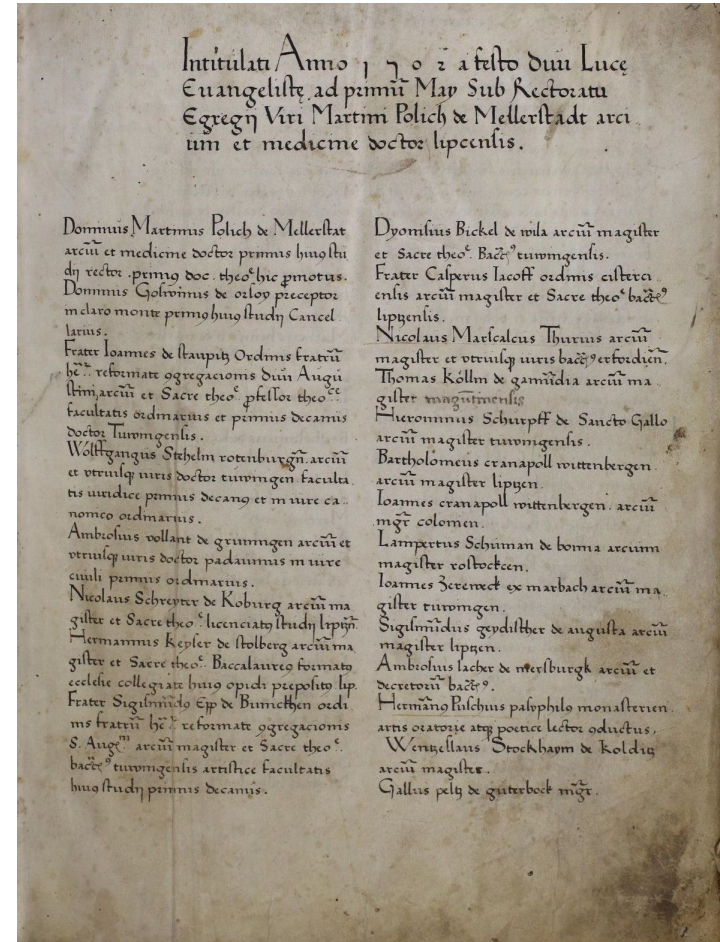 Intitulati Anno 1 5 0 2 a festo diui Lucę
Euangelistę ad primū May Sub Rectoratu
Egregij Viri Martini Polich de Mellerstadt arci
um et medicine doctor lipcensis.
Dominus Martinus Polich de Mellerstat
arciū et medicine doctor primus huiꝰ stu
dij rector . primꝰ doc. theoᶜ hic ꝓmotus.
Dominus Goswinus de orloy preceptor
in claro monte primꝰ huiꝰ studij Cancel
larius.
Frater Ioannes de staupitz Ordinis fratrū
reformate ɔgregacionis diui Augu
stini arciū et Sacre theoᶜ ꝓfessor theoᶜᵉ
facultatis ordinarius et primus decanus
doctor Tuwingensis.
Wolffgangus Stehelin rotenburgn̄. arciū
et vtriusqꝫ iuris doctor tuwingen faculta
tis iuridice primus decanꝰ et in iure ca
nonico ordinarius.
Ambrosius vollant de gruningen arciū et
vtriusqꝫ iuris doctor paduanus in iure
ciuili primus ordinarius.
Nicolaus Schreyter de Koburg arciū ma
gister et Sacre theoᶜ. licenciatꝰ studij liptzn̄.
Hermannus Keyser de stolberg arciū ma
gister et Sacre theoᶜ. Baccalaureꝰ formatꝰ
ecclesie collegiate huiꝰ opidi prepositꝰ lip.
Frater Sigismūdꝰ Epp de Bunickhen ordi
nis fratrū reformate ɔgregacionis
S. Augᵐⁱ arciū magister et Sacre theoᶜ.
baccᵉꝰ tuwingensis artistice facultatis
huiꝰ studij primus decanus.
Dyonisius Bickel de wila arciū magister
et Sacre theoᶜ. Baccᵉꝰ tuwingensis.
Frater Casperus Iacoff ordinis cisterci
ensis arciū magister et Sacre theoᶜ baccᵉꝰ
liptzensis.
Nicolaus Marscalcus Thurius arciū
magister et vtriusqꝫ iuris baccᵉꝰ erfordien̄.
Thomas Kölln de gamūdia arciū ma
gister
Hieronimus Schurpff de Sancto Gallo
arciū magister tuwingensis.
Bartholomeus cranapoll wittenbergen
arciū magister liptzen.
Ioannes cranapoll wittenbergen. arciū
mgr̄ colonien.
Lampertus Schuman de bonna arcium
magister rostockcen.
Ioannes Zereweck ex marbach arciū ma
gister tuwingen.
Sigismūdus geydisther de augusta arciū
magister liptzen.
Ambrosius lacher de mersburgk arciū et
decretorū baccᵉꝰ.
Hermānꝰ Puschius pasyphilꝰ monasterien
artis oratorie atqꝫ poetice lector ɔductus,
Wentzeslaus Stockhaym de Koldig
arciū magister.
Gallus peltz de guterbock mgr̄.